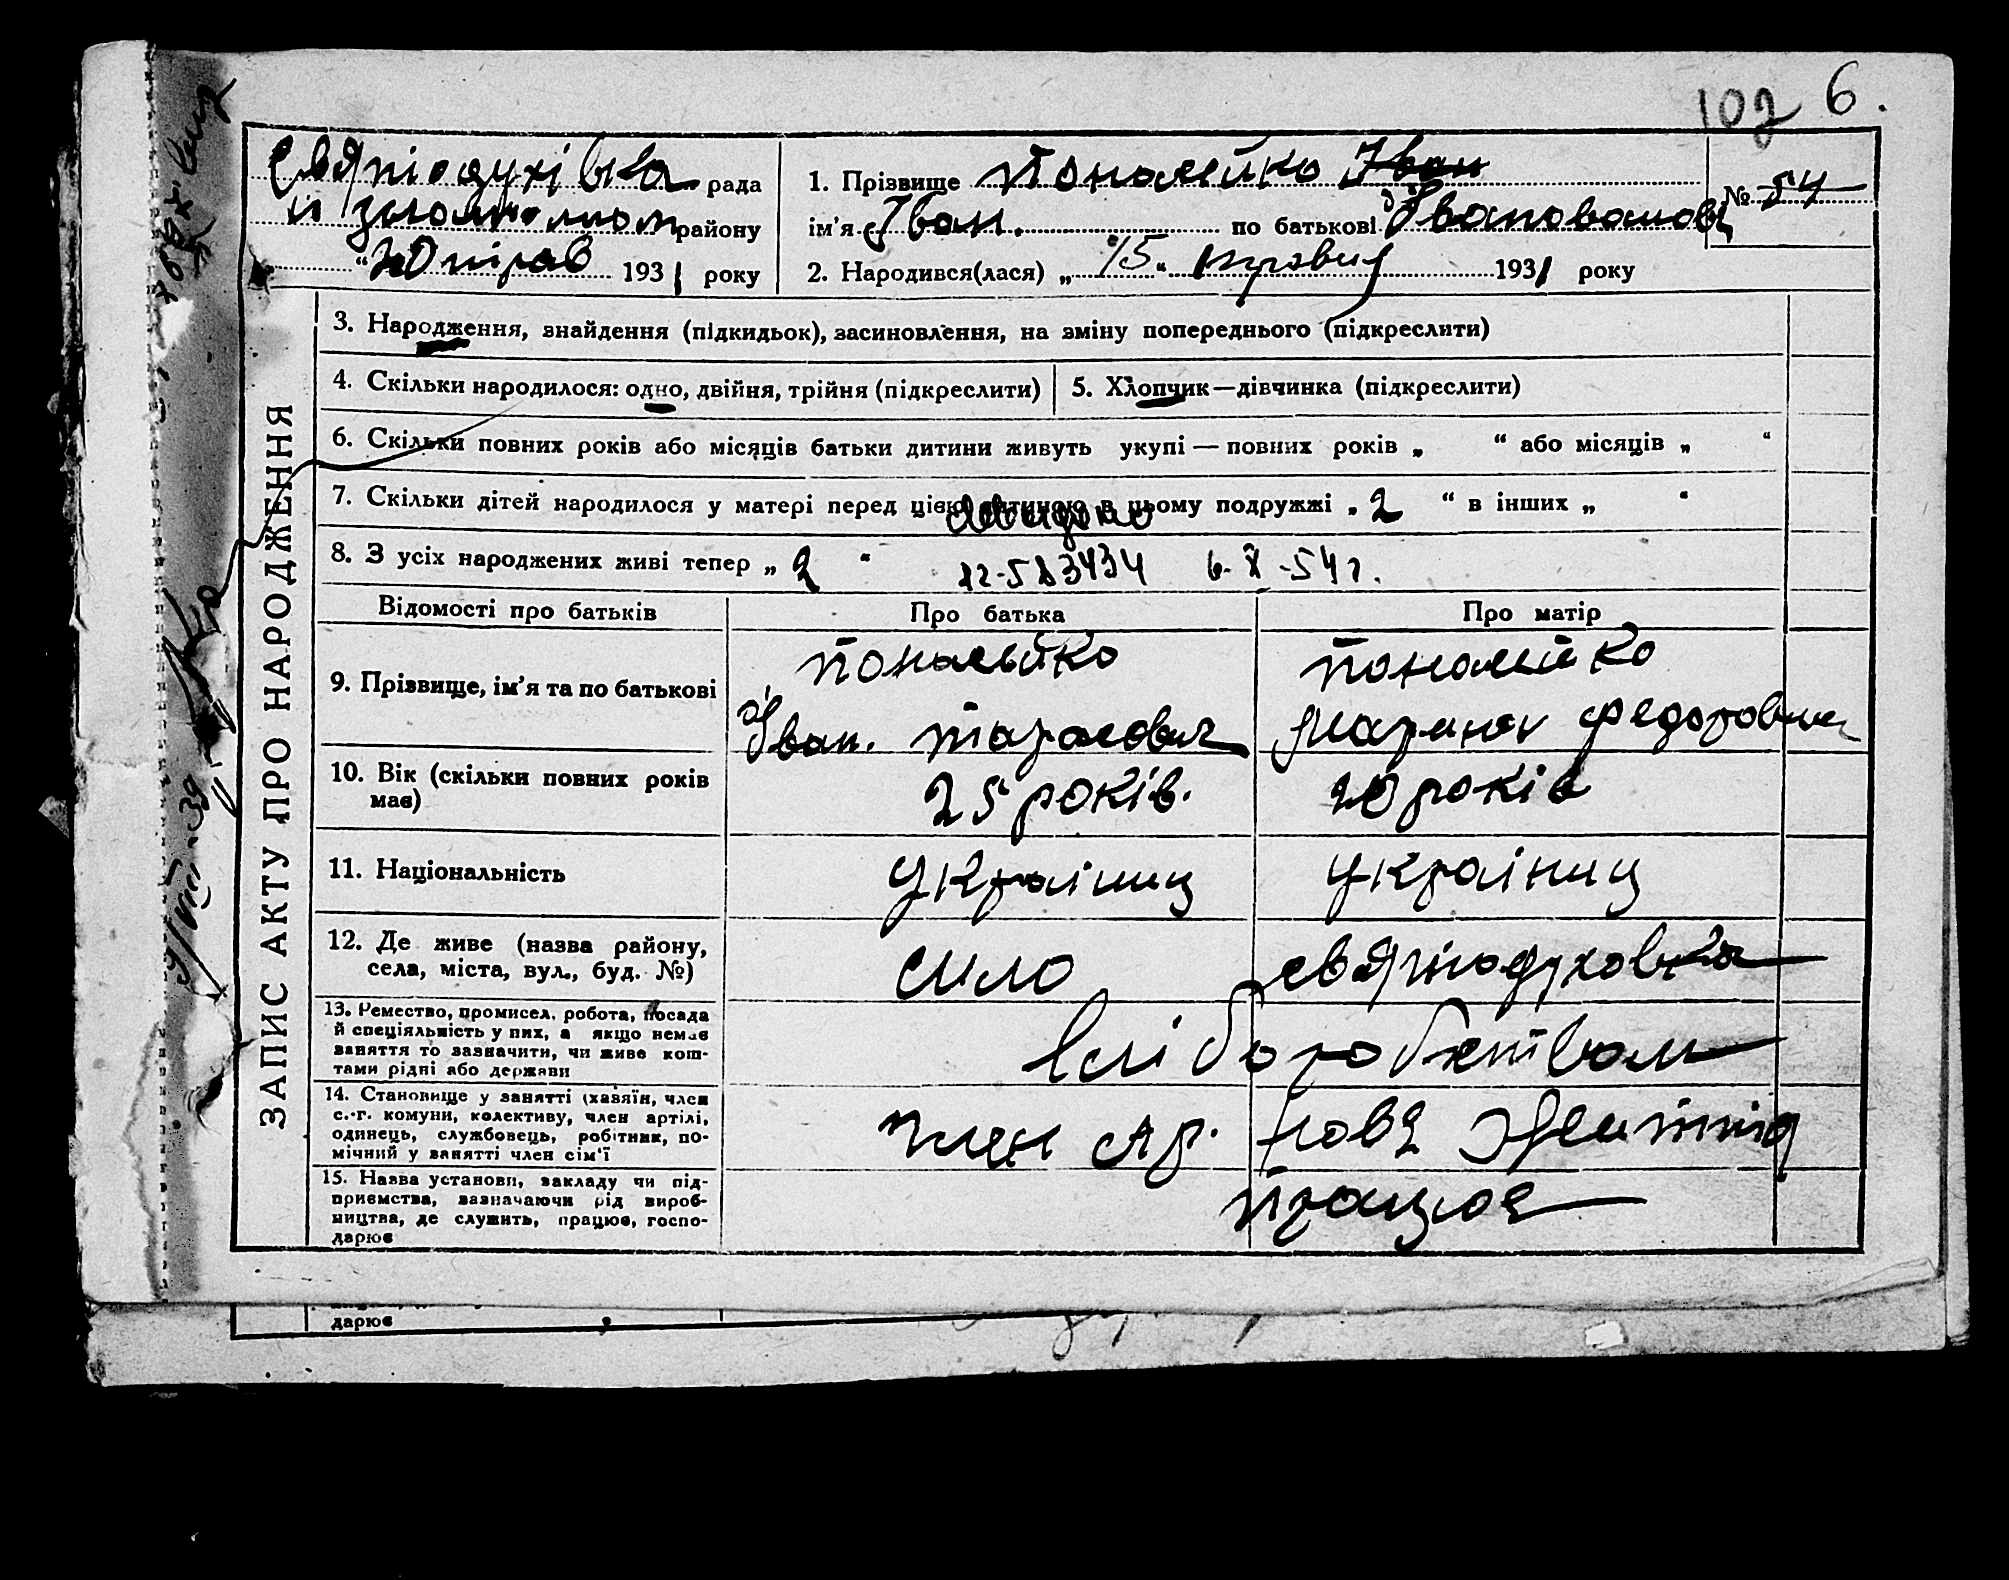 102 6.
Святодухівка рада
району
193 1 року
1. Прізвище Паналейко Іван
ім'я Іван. по батькові
№ 54
2. Народився(лася) „ 15 “ травня 1931 року
ЗАПИС АКТУ ПРО НАРОДЖЕННЯ
3. Народження, знайдення (підкидьок), засиновлення, на зміну попереднього (підкреслити)
4. Скільки народилося: одно, двійня, трійня (підкреслити)
5. Хлопчик—дівчинка (підкреслити)
6. Скільки повних років або місяців батьки дитини живуть укупі — повних років „ “ або місяців „ “
7. Скільки дітей народилося у матері перед цією дитиною в цьому подружжі „ 2 “ в інших „ “
8. З усіх народжених живі тепер „ 2 “
6-X-54 г.
Відомості про батьків Про батька Про матір
9. Прізвище, ім'я та по батькові
Іван. Тарасович
Федоровна
10. Вік (скільки повних років має)
25 років. 20 років
11. Національність
українец українец
12. Де живе (назва району, села, міста, вул., буд. №)
село святодуховка
13. Ремество, промисел, робота, посада й спеціяльність у них, а якщо немає заняття то зазначити, чи живе коштами рідні або держави
хліборобством
14. Становище у занятті (хазяїн, член с.-г. комуни, колективу, член артілі, одинець, службовець, робітник, помічний у занятті член сім'ї
член ар.
15. Назва установи, закладу чи підприємства, зазначаючи рід виробництва, де служить, працює, господарює
працює
дарює